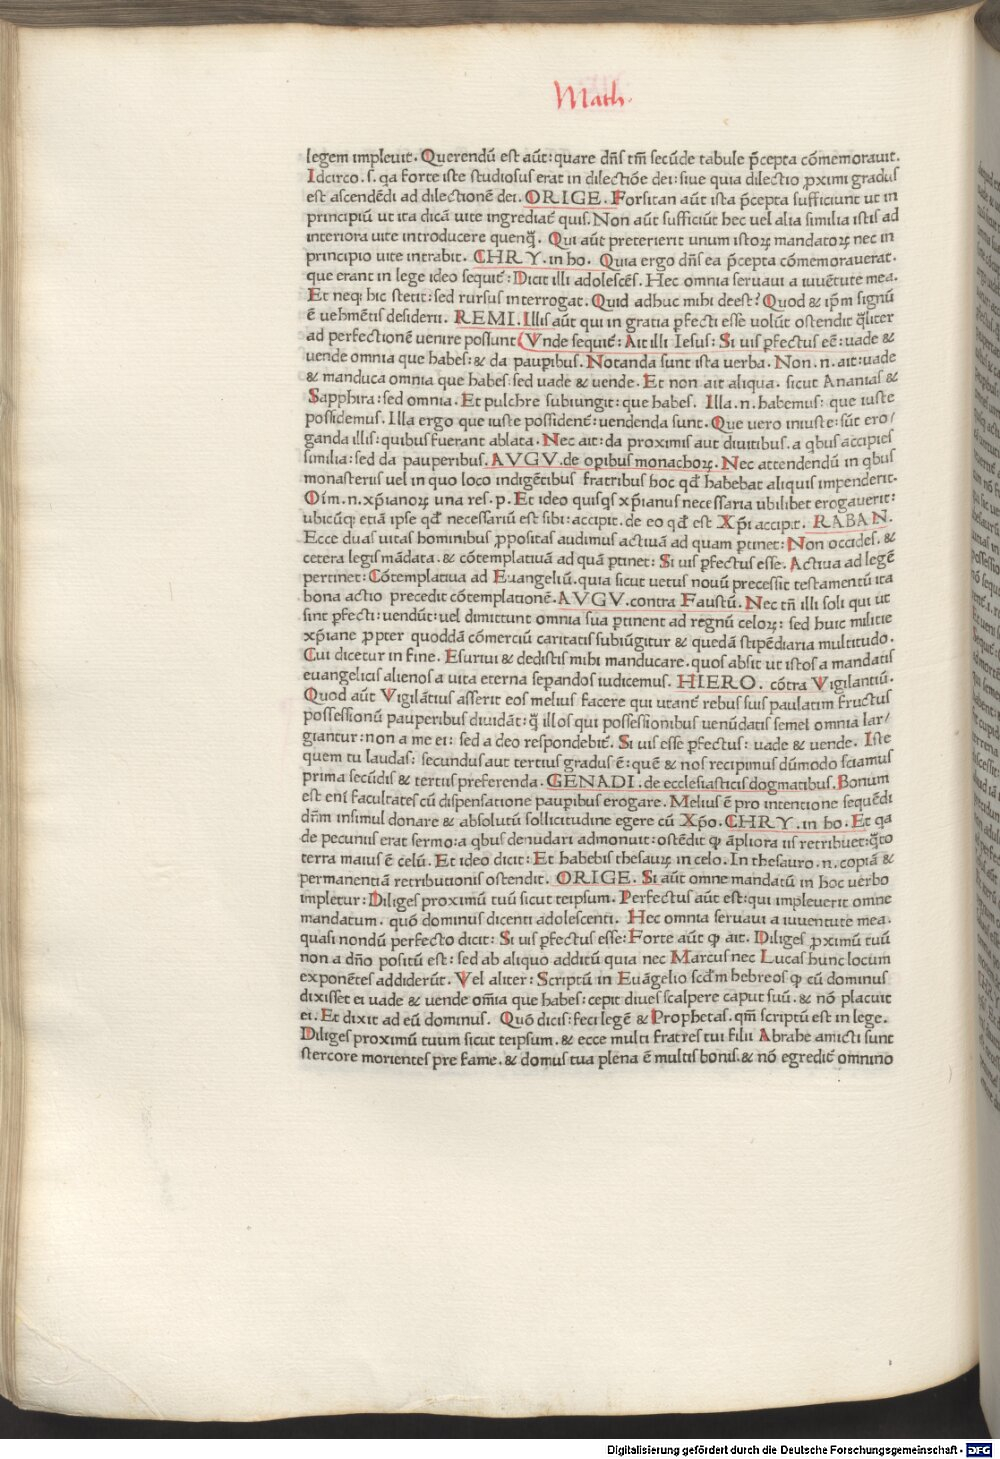 Math.
legem impleuit. Querendū est aūt: quare dn̄s tm̄ secūde tabule p̄cepta cōmemorauit.
Idcirco. s. qa forte iste studiosus erat in dilectiōe dei: siue quia dilectio ꝓximi gradus
est ascendēdi ad dilectionē dei. ORIGE. Forsitan aūt ista p̄cepta sufficiunt ut in
principiū ut ita dicā uite ingrediat̄ quis. Non aūt sufficiūt hec uel alia similia istis ad
interiora uite introducere quenq̄. Qui aūt preterierit unum istoꝝ mandatoꝝ nec in
principio uite intrabit. CHRY. in ho. Quia ergo dn̄s ea p̄cepta cōmemorauerat.
que erant in lege ideo sequit̄: Dicit illi adolescēs. Hec omnia seruaui a iuuētute mea.
Et neq; hic stetit: sed rursus interrogat. Quid adhuc mihi deest? Quod & ip̄m signū
ē uehmētis desiderii. REMI. Illis aūt qui in gratia ꝑfecti esse uolūt ostendit q̄liter
ad perfectionē uenire possunt (Vnde sequit̄: Ait illi Iesus: Si uis ꝑfectus eē: uade &
uende omnia que habes: & da pauꝑibus. Notanda sunt ista uerba. Non. n. ait: uade
& manduca omnia que habes: sed uade & uende. Et non ait aliqua. sicut Ananias &
Sapphira: sed omnia. Et pulchre subiungit: que habes. Illa. n. habemus: que iuste
possidemus. Illa ergo que iuste possident̄: uendenda sunt. Que uero iniuste: sūt ero/
ganda illis: quibus fuerant ablata. Nec ait: da proximis aut diuitibus. a qbus accipies
similia: sed da pauperibus. AVGV. de oꝑibus monachoꝝ. Nec attendendū in qbus
monasteriis uel in quo loco indigētibus fratribus hoc qđ habebat aliquis impenderit.
Oīm. n. xp̄ianoꝝ una res. p. Et ideo quisqs xp̄ianus necessaria ubilibet erogauerit:
ubicūq; etiā ipse qđ necessariū est sibi: accipit. de eo qđ est Xp̄i accipit. RABAN.
Ecce duas uitas hominibus ꝓpositas audimus actiuā ad quam ꝑtinet: Non occides. &
cetera legis mādata. & cōtemplatiuā ad quā ꝑtinet: Si uis ꝑfectus esse. Actiua ad legē
pertinet: Cōtemplatiua ad Euangeliū. quia sicut uetus nouū precessit testamentū ita
bona actio precedit cōtemplationē. AVGV. contra Faustū. Nec tn̄ illi soli qui ut
sint ꝑfecti: uendūt: uel dimittunt omnia sua ꝑtinent ad regnū celoꝝ: sed huic militie
xp̄iane ꝓpter quoddā cōmerciū caritatis subiūgitur & quedā stipēdiaria multitudo.
Cui dicetur in fine. Esuriui & dedistis mihi manducare. quos absit ut istos a mandatis
euangelicis alienos a uita eterna seꝑandos iudicemus. HIERO. cōtra Vigilantiū.
Quod aūt Vigilātius asserit eos melius facere qui utant̄ rebus suis paulatim fructus
possessionū pauperibus diuidāt: q̄ illos qui possessionibus uenūdatis semel omnia lar/
giantur: non a me ei: sed a deo respondebit̄. Si uis esse ꝑfectus: uade & uende. Iste
quem tu laudas: secundus aut tertius gradus ē: quē & nos recipimus dūmodo sciamus
prima secūdis & tertiis preferenda. GENADI. de ecclesiasticis dogmatibus. Bonum
est enī facultates cū dispensatione pauꝑibus erogare. Melius ē pro intentione sequēdi
dn̄m insimul donare & absolutū sollicitudine egere cū Xp̄o. CHRY. in ho. Et qa
de pecuniis erat sermo: a qbus denudari admonuit: ostēdit ꝙ āpliora iis retribuet: q̄to
terra maius ē celū. Et ideo dicit: Et habebis thesauꝝ in celo. In thesauro. n. copiā &
permanentiā retributionis ostendit. ORIGE. Si aūt omne mandatū in hoc uerbo
impletur: Diliges proximū tuū sicut teipsum. Perfectus aūt est: qui impleuerit omne
mandatum. quō dominus dicenti adolescenti. Hec omnia seruaui a iuuentute mea.
quasi nondū perfecto dicit: Si uis ꝑfectus esse: Forte aūt ꝙ ait. Diliges ꝓximū tuū
non a dn̄o positū est: sed ab aliquo additū quia nec Marcus nec Lucas hunc locum
exponētes addiderūt. Vel aliter: Scriptū in Euāgelio scd̄m hebreos ꝙ cū dominus
dixisset ei uade & uende om̄ia que habes: cepit diues scalpere caput suū. & nō placuit
ei. Et dixit ad eū dominus. Quō dicis: feci legē & Prophetas. qm̄ scriptū est in lege.
Diliges proximū tuum sicut teipsum. & ecce multi fratres tui filii Abrahe amicti sunt
stercore morientes pre fame. & domus tua plena ē multis bonis. & nō egredit̄ omnino
Digitalisierung gefördert durch die Deutsche Forschungsgemeinschaft - DFG